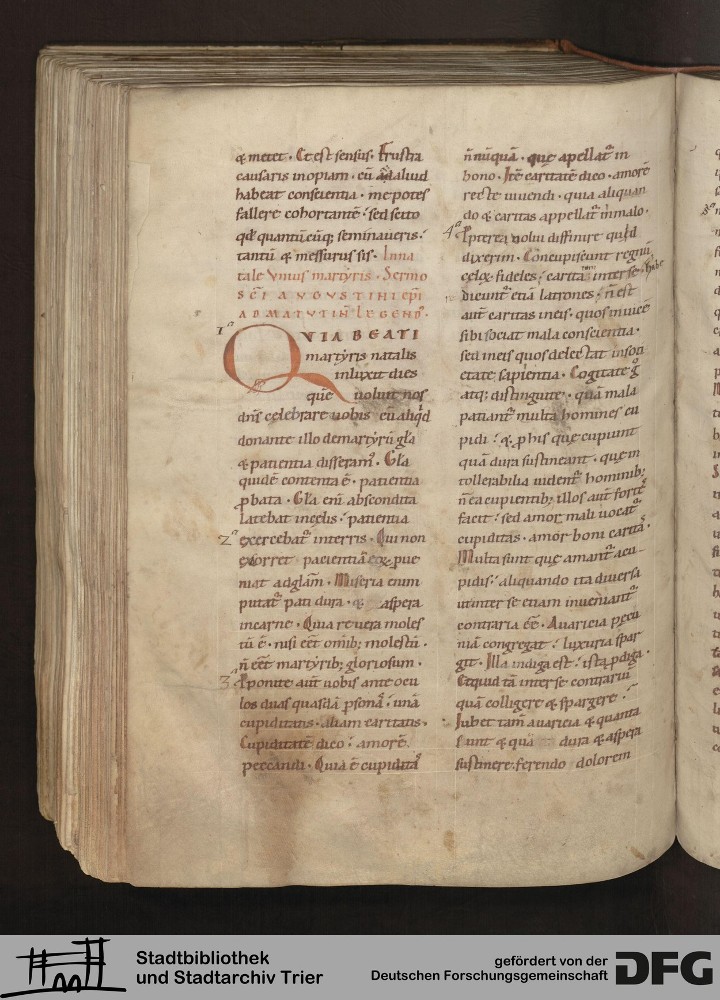 & metet · Et est sensus· Frustra
causaris inopiam · cū ad aliud
habeat conscientia · me potes
fallere cohortantē · sed scito
qđ quantūcūq; seminaueris ·
tantū & messurus sis· In na
tale vnius martyris · Sermo
SCI AVGVSTINI epi
AD MATVTIN LEGEND·
1ª
QVIA BEATI
martyris natalis
inluxit dies
quē uoluit nos
dn̄s celebrare uobis cū aliqđ
donante illo de martyrū gła
& patientia disseram · Gła
quidē contenta ē · patientia
ꝓbata · Gła enī abscondita
latebat in celis · patientia
2ª exercebat᷑ in terris · Qui non
exhorret patientiā
niat ad glam̄ · Miseria enim
putat᷑ pati dura · & aspera
in carne · Quia re uera moles
tū ē · nisi eēt omīb; molestū ·
n̄ eēt martyrib; gloriosum ·
3ª Proponite aut̄ uobis ante ocu
los duas quasdā ꝑsonas · unā
cupiditatis · aliam caritatis ·
Cupiditatē dico · amorē
peccandi · Quia ē cupiditas
n̄nūquā · que appellat᷑ in
bono · Itē caritatē dico · amorē
recte uiuendi · quia aliquan
do & caritas appellat᷑ in malo ·
4ª Propterea uolui diffinire quid
dixerim · Concupiscunt regnū
celoꝝ fideles · caritatem inter se habe
dicunt᷑ etiā latrones · n̄ est
aut̄ caritas in eis · quos in uicē
sibi sociat mala conscientia ·
sed in eis quos delectat in soci
etate sapientia · Cogitate g̊
atq; distinguite · quā mala
patiant᷑ multa homines cu
pidi · & ꝓ his que cupiunt
quā dura sustineant · que in
tollerabilia uident᷑ hominib;
n̄ ea cupientib; illos aut̄ fortes
facit · sed amor mali uocat᷑
cupiditas · amor boni caritas ·
Multa sunt que amant᷑ a cu
pidis · aliquando ita diuersa
ut inter se etiam inueniant᷑
contraria eē · Auaricia pecu
niā congregat · luxuria spar
git · Illa indiga est · ista ꝓdiga ·
Et quid tā inter se contrariū
quā colligere & spargere ·
Iubet tam̄ auaricia & quanta
sunt & quā dura & aspera
sustinere · ferendo dolorem
Stadtbibliothek
und Stadtarchiv Trier
gefördert von der
Deutschen Forschungsgemeinschaft
DFG